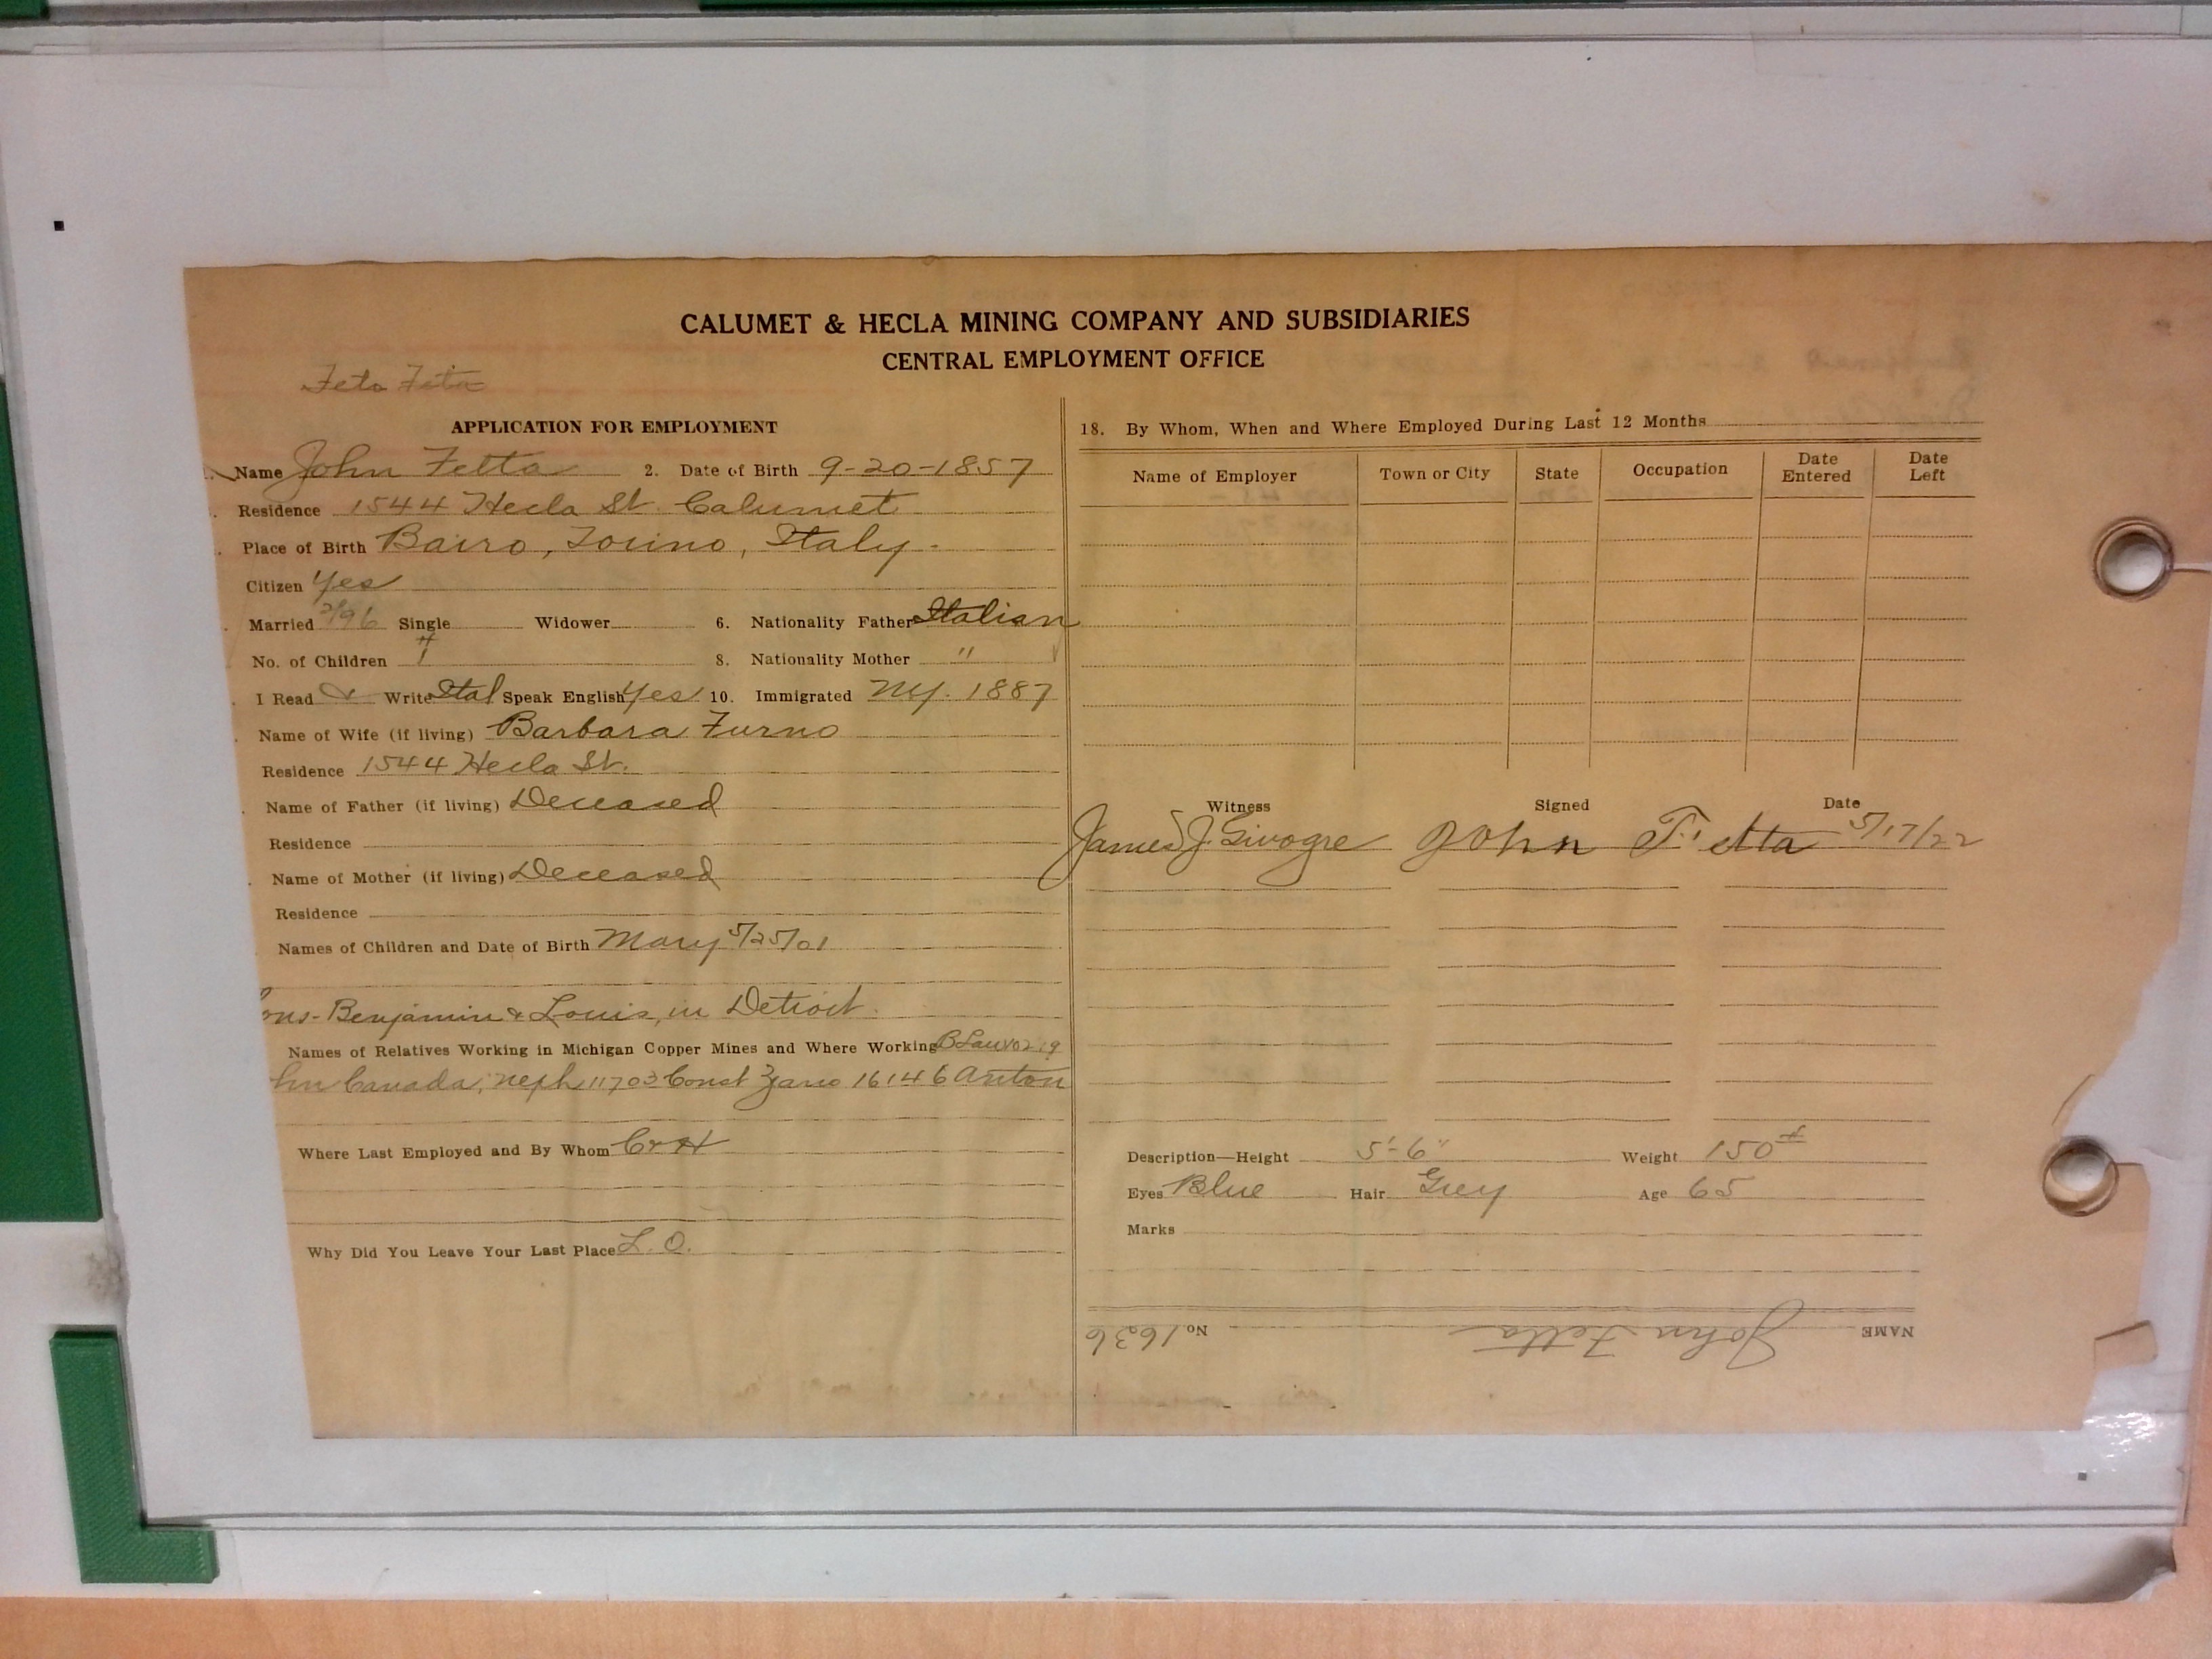 CALUMET & HECLA MINING COMPANY AND SUBSIDIARIES
CENTRAL EMPLOYMENT OFFICE
Feto Fita
APPLICATION FOR EMPLOYMENT
Name John Fetta 2. Date of Birth 9-20-1857
Residence 1544 Hecla St. Calumet
Place of Birth Bairo, Torino, Italy.
Citizen Yes
Married 2/96 Single Widower 6. Nationality Father Italian
No. of Children 1 8. Nationality Mother "
I Read & Write Ital Speak English Yes 10. Immigrated NY. 1887
Name of Wife (if living) Barbara Furno
Residence 1544 Hecla St.
Name of Father (if living) Deceased
Residence
Name of Mother (if living) Deceased
Residence
Names of Children and Date of Birth Mary 5/25/01
ons- Benjamin & Louis, in Detroit.
Names of Relatives Working in Michigan Copper Mines and Where Working
Canada, neph 11703 Const 16146 Anton
Where Last Employed and By Whom C & H
Why Did You Leave Your Last Place L. O.
18. By Whom, When and Where Employed During Last 12 Months
Name of Employer Town or City State Occupation Date Entered Date Left
Witness Signed Date
James J. Givogre John Fetta 5/17/22
Description—Height 5'-6" Weight 150#
Eyes Blue Hair Grey Age 65
Marks
NAME John Fetta No. 1636